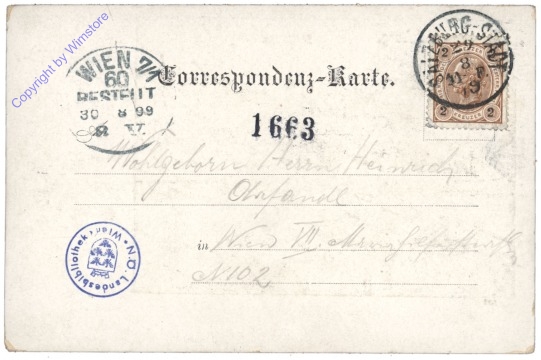 Copyright by Wimstore
WIEN 7/1
60
BESTELLT
30 8 99
SALZBURG-STADT
29
8
2
2
KREUZER
Correspondenz-Karte.
1663
Wohlgeborn Herrn Heinrich
in Wien VII.
N 102
N.Ö. Landesbibliothek Wien